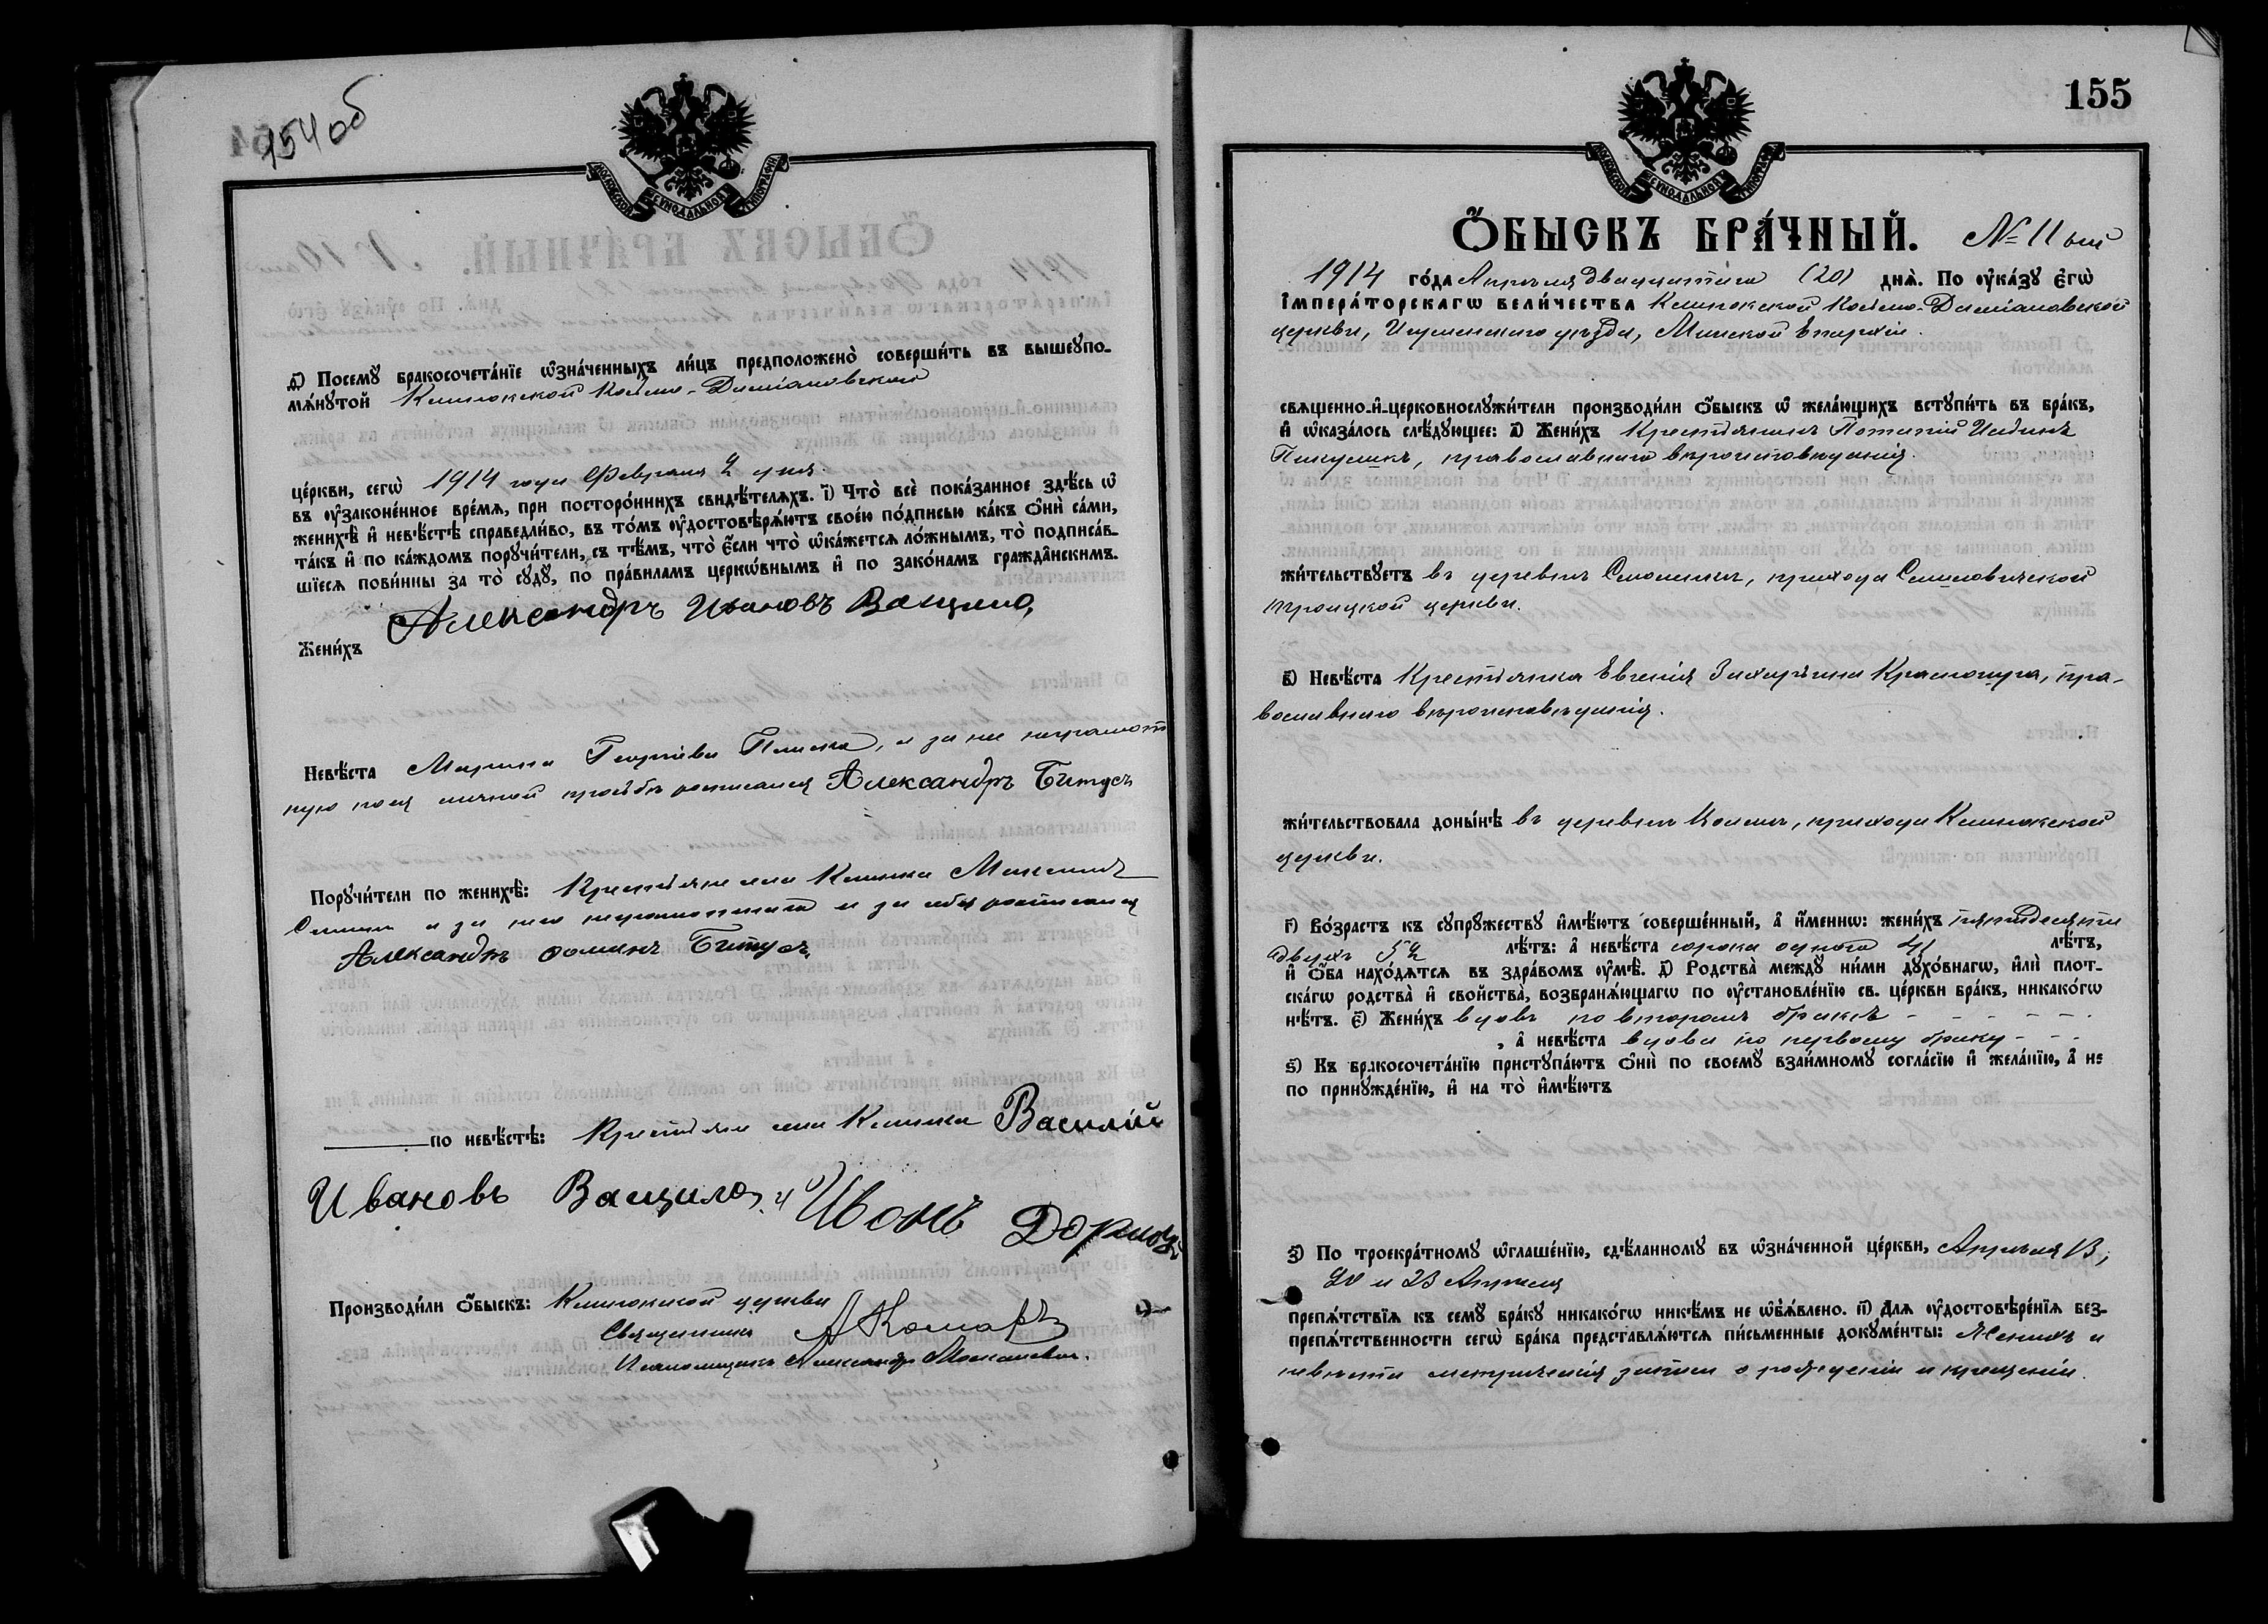 154об
МОСКОВСКОЙ СѴНОДАЛЬНОЙ ТИПОГРАФІИ
д҃) Посемꙋ̀ бракосочета́нїе ѡ҆зна́ченныхъ ли́цъ предположено̀ соверши́ть въ вышеꙋпо-
мѧ́нꙋтой Клинокской Космо-Даміановской
це́ркви, сегѡ̀ 1914 года Февраля 2 дня.
въ ᲂу҆зако́ненное вре́мѧ, при посторо́ннихъ свидѣ́телѧхъ. і҃) Что̀ всѐ пока́занное здѣ́сь ѡ҆
женихѣ̀ и҆ невѣ́стѣ справедли́во, въ то́мъ ᲂу҆достовѣрѧ́ютъ свое́ю по́дписью ка́къ ѻ҆нѝ са́ми,
та́къ и҆ по ка́ждомъ порꙋчи́тели, съ тѣ́мъ, что̀ є҆́сли что̀ ѡ҆ка́жетсѧ ло́жнымъ, то̀ подписа́в-
шїесѧ пови́нны за то̀ сꙋдꙋ̀, по пра́виламъ церко́внымъ и҆ по зако́намъ гражда́нскимъ.
Жени́хъ Александръ Ивановъ Ващило,
Невѣ́ста Марина Георгіева Плиска, а за нее неграмот
ную по ея личной просьбѣ росписался Александръ Битусъ
Порꙋчи́тели по женихѣ̀: Крестьяне села Клинка Максимъ
а за него неграмотнаго и за себя росписался
Александръ Битусъ,
по невѣ́стѣ: Крестьяне села Клинка Василій
Ивановъ Ващило, и Иванъ
Производи́ли ѻ҆́быскъ: Клинокской церкви
Священникъ А Комаръ
Псаломщикъ Александръ
155
МОСКОВСКОЙ СѴНОДАЛЬНОЙ ТИПОГРАФІИ
Ѻ҆́БЫСКЪ БРА́ЧНЫЙ. № 11 ый
1914 го́да Апрѣля двадцатаго (20) днѧ̀. По ᲂу҆ка́зꙋ є҆гѡ̀
і҆мпера́торскагѡ вели́чества Клинокской Космо-Даміановской
церкви, Игуменскаго уѣзда, Минской Епархіи.
свѧще́нно-и҆-церковнослꙋжи́тели производи́ли ѻ҆́быскъ ѡ҆ жела́ющихъ встꙋпи́ть въ бра́къ,
и҆ ѡ҆каза́лось слѣ́дꙋющее: а҃) Жени́хъ Крестьянинъ Потапій
православнаго вѣроисповѣданія.
жи́тельствꙋетъ въ деревнѣ прихода
троицкой церкви.
в҃) Невѣ́ста Крестьянка Евгенія Захарьина пра-
вославнаго вѣроисповѣданія.
жи́тельствовала доны́нѣ въ деревнѣ прихода Клинокской
церкви.
г҃) Во́зрастъ къ сꙋпрꙋ́жествꙋ и҆мѣ́ютъ соверше́нный, а҆ и҆́менно: жени́хъ пятидесяти
двухъ 52 лѣ́тъ: а҆ невѣ́ста сорока одного 41 лѣ́тъ,
и҆ ѻ҆́ба нахо́дѧтсѧ въ здра́вомъ ᲂу҆мѣ̀. д҃) Родства̀ междꙋ̀ ни́ми дꙋхо́внагѡ, и҆лѝ плот-
ска́гѡ родства̀ и҆ сво́йства, возбранѧ́ющагѡ по ᲂу҆становле́нїю св. це́ркви бра́къ, никако́гѡ
нѣ́тъ. є҃) Жени́хъ вдовъ по второмъ бракѣ
, а҆ невѣ́ста вдова по первому браку
ѕ҃) Къ бракосочета́нїю пристꙋпа́ютъ ѻ҆нѝ по своемꙋ̀ взаи́мномꙋ согла́сїю и҆ жела́нїю, а҆ не
по принꙋжде́нїю, и҆ на то̀ и҆мѣ́ютъ
з҃) По троекра́тномꙋ ѡ҆глаше́нїю, сдѣ́ланномꙋ въ ѡ҆зна́ченной це́ркви, Апрѣля 13,
20 и 23 Апрѣля
препѧ́тствїѧ къ семꙋ̀ бра́кꙋ никако́гѡ никѣ́мъ не ѡ҆б̾ѧ́влено. и҃) Длѧ̀ ᲂу҆достовѣре́нїѧ без-
препѧ́тственности сегѡ̀ бра́ка представлѧ́ютсѧ пи́сьменные докꙋме́нты: Жениха и
невѣсты метрическія записи о рожденіи и крещеніи.